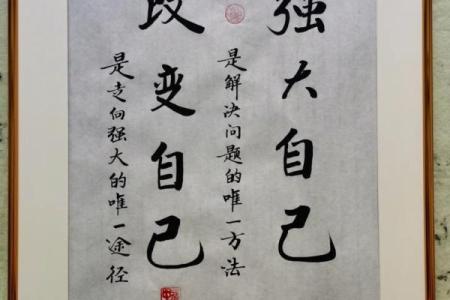 强大自己
是解决问题的唯一方法
改变自己
是走向强大的唯一途径